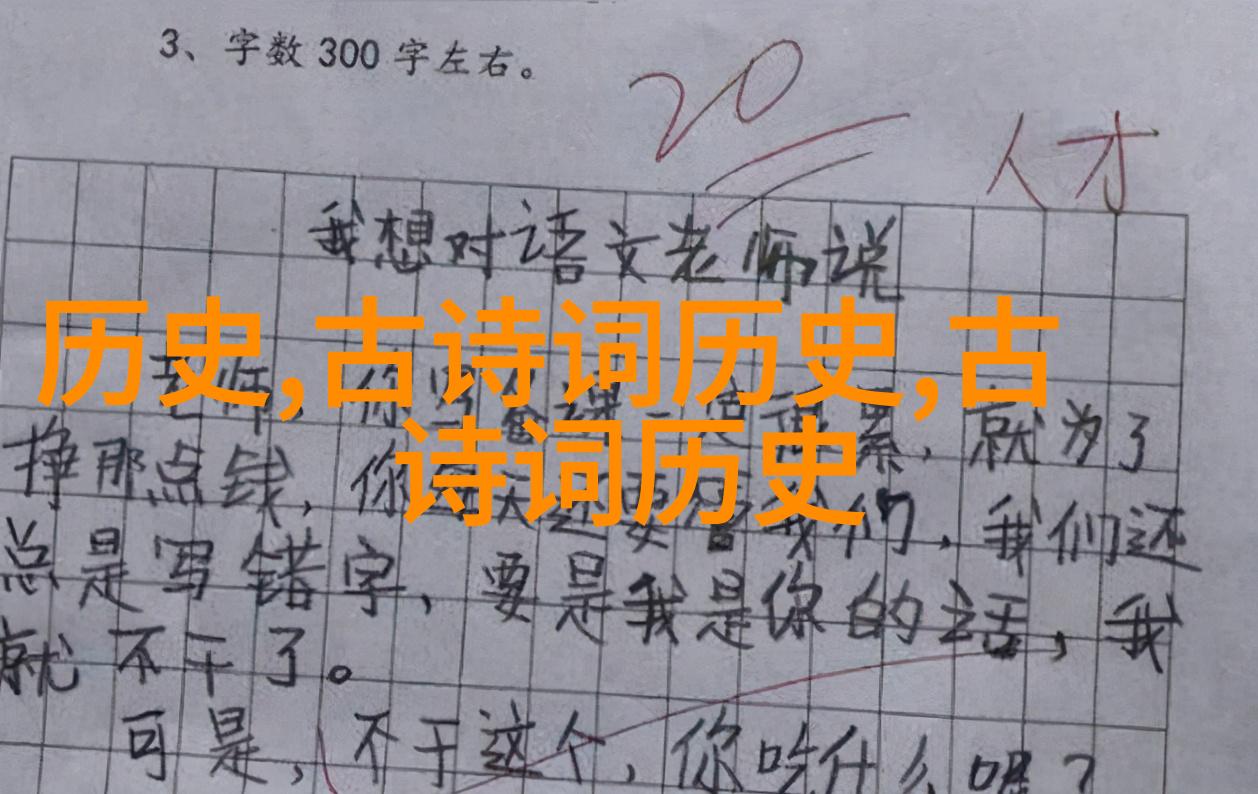 3、字数 300 字左右。
20
人才
我想对语文老师说
历史,古诗词历史,古
诗词历史
老师,你,就为了
挣那点钱,你我们,我们还
总是写错字,要是我是你的话,我
就不干了。
可是,不干这个,你吃什么呢?